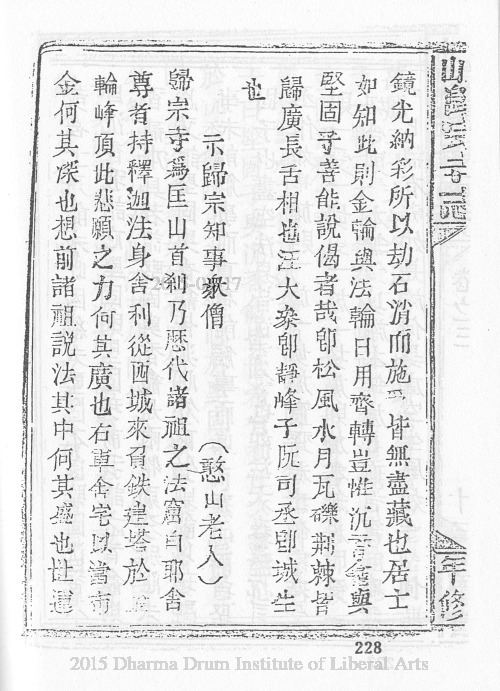 鏡光納彩所以劫石消而施皆無盡藏也居士
如知此則金輪與法輪日用齊轉豈惟沉香龕與
堅固子善能說偈者哉即松風水月瓦礫荊棘皆
歸廣長舌相也汪大衆即靜峰子阮司丞即城生
也
示歸宗知事衆僧（憨山老人）
歸宗寺爲匡山首刹乃歷代諸祖之法窟自耶舍
尊者持釋迦法身舍利從西域來負鉄建塔於
輪峰頂此悲願之力何其廣也右軍舍宅以當布
金何其深也想前諸祖說法其中何其盛也世運
年修
228
2015 Dharma Drum Institute of Liberal Arts